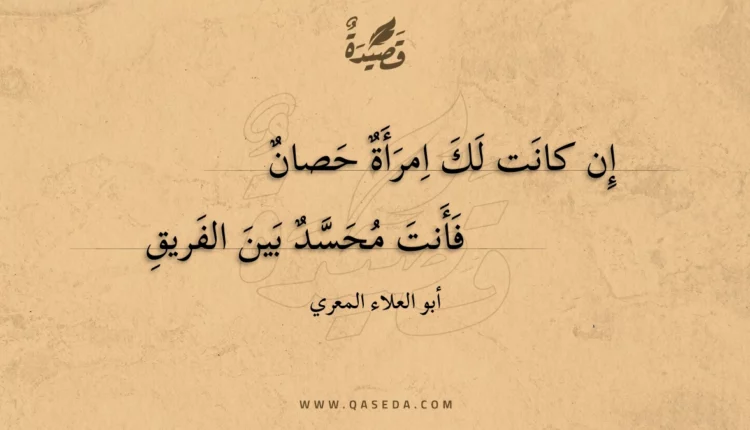 قَصِيْدَةٌ
إِن كانَت لَكَ اِمرَأَةٌ حَصانٌ
فَأَنتَ مُحَسَّدٌ بَينَ الفَريقِ
أبو العلاء المعري
WWW.QASEDA.COM